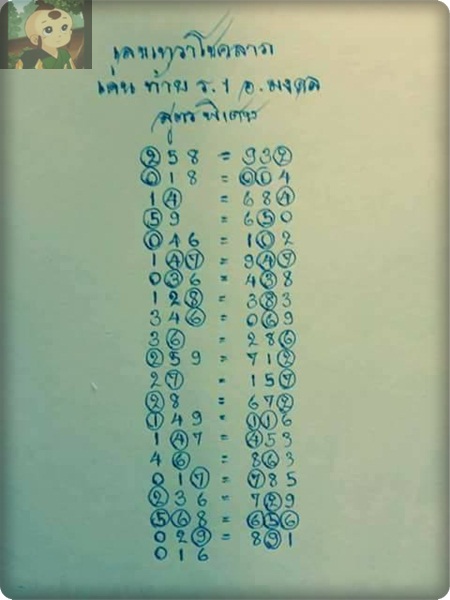 สูตรพิเศษ
258 = 932
018 = 004
14 = 684
59 = 650
046 = 102
147 = 947
036 = 438
128 = 383
346 = 069
36 = 286
259 = 712
27 = 157
28 = 672
149 = 116
147 = 453
46 = 863
017 = 785
236 = 729
568 = 656
029 = 891
016